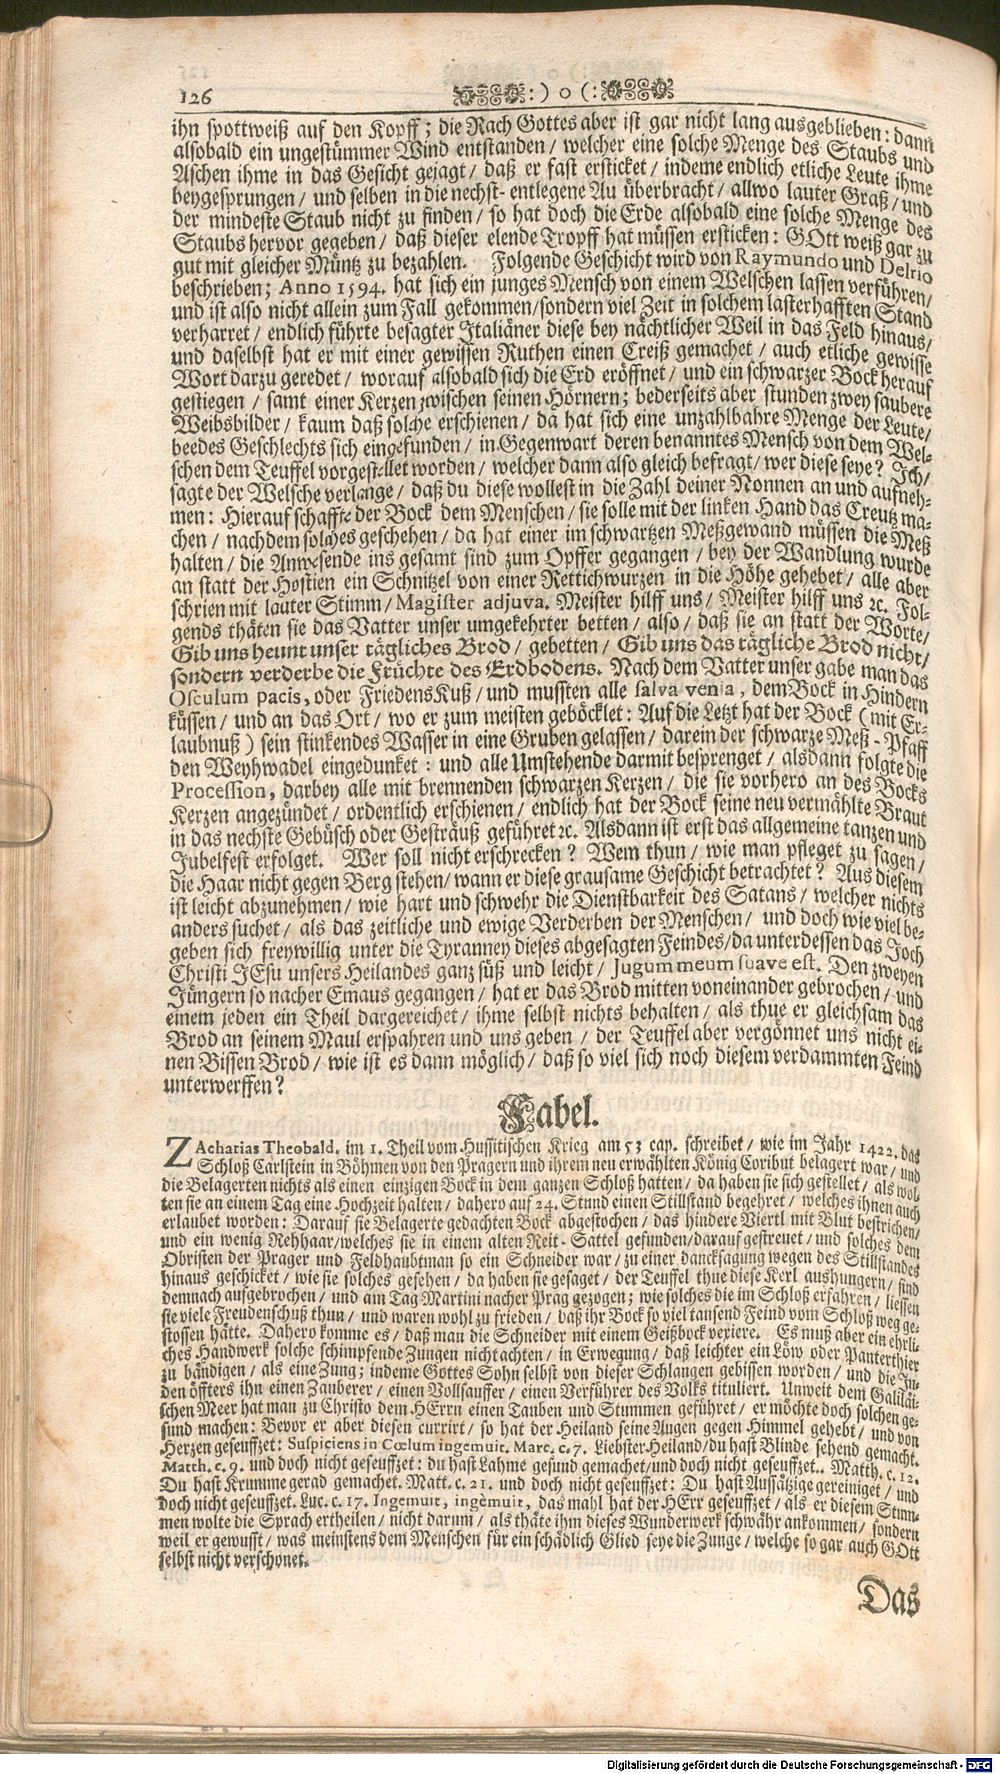 126 :) o (:
ihn spottweiß auf den Kopff; die Rach Gottes aber ist gar nicht lang ausgeblieben: dann
alsobald ein ungestümmer Wind entstanden / welcher eine solche Menge des Staubs und
Aschen ihme in das Gesicht gejagt / daß er fast ersticket / indeme endlich etliche Leute ihme
beygesprungen / und selben in die nechst-entlegene Au überbracht / allwo lauter Graß / und
der mindeste Staub nicht zu finden / so hat doch die Erde alsobald eine solche Menge des
Staubs hervor gegeben / daß dieser elende Tropff hat müssen ersticken: GOtt weiß gar zu
gut mit gleicher Müntz zu bezahlen. Folgende Geschicht wird von Raymundo und Delrio
beschrieben; Anno 1594. hat sich ein junges Mensch von einem Welschen lassen verführen /
und ist also nicht allein zum Fall gekommen / sondern viel Zeit in solchem lasterhafften Stand
verharret / endlich führte besagter Italiäner diese bey nächtlicher Weil in das Feld hinaus /
und daselbst hat er mit einer gewissen Ruthen einen Creiß gemachet / auch etliche gewisse
Wort darzu geredet / worauf alsobald sich die Erd eröffnet / und ein schwarzer Bock herauf
gestiegen / samt einer Kerzen zwischen seinen Hörnern; bederseits aber stunden zwey saubere
Weibsbilder / kaum daß solche erschienen / da hat sich eine unzahlbahre Menge der Leute /
beedes Geschlechts sich eingefunden / in Gegenwart deren benanntes Mensch von dem Wel-
schen dem Teuffel vorgestellet worden / welcher dann also gleich befragt / wer diese seye? Ich /
sagte der Welsche verlange / daß du diese wollest in die Zahl deiner Nonnen an und aufneh-
men: Hierauf schaffte der Bock dem Menschen / sie solle mit der lincken Hand das Creutz ma-
chen / nachdem solches geschehen / da hat einer im schwartzen Meßgewand müssen die Meß
halten / die Anwesende ins gesamt sind zum Opffer gegangen / bey der Wandlung wurde
an statt der Hostien ein Schnitzel von einer Rettichwurzen in die Höhe gehebet / alle aber
schrien mit lauter Stimm / Magister adjuva. Meister hilff uns / Meister hilff uns ꝛc. Fol-
gends thäten sie das Vatter unser umgekehrter betten / also / daß sie an statt der Worte /
Gib uns heunt unser tägliches Brod / gebetten / Gib uns das tägliche Brod nicht /
sondern verderbe die Früchte des Erdbodens. Nach dem Vatter unser gabe man das
Osculum pacis, oder Friedens Kuß / und mussten alle salva venia, dem Bock in Hindern
küssen / und an das Ort / wo er zum meisten geböcklet: Auf die Letzt hat der Bock (mit Er-
laubnuß) sein stinkendes Wasser in eine Gruben gelassen / darein der schwarze Meß-Pfaff
den Weyhwadel eingedunket: und alle Umstehende darmit besprenget / alsdann folgte die
Procession, darbey alle mit brennenden schwarzen Kerzen / die sie vorhero an des Bocks
Kerzen angezündet / ordentlich erschienen / endlich hat der Bock seine neu vermählte Braut
in das nechste Gebüsch oder Gesträuß geführet ꝛc. Alsdann ist erst das allgemeine tanzen und
Jubelfest erfolget. Wer soll nicht erschrecken? Wem thun / wie man pfleget zu sagen /
die Haar nicht gegen Berg stehen / wann er diese grausame Geschicht betrachtet? Aus diesem
ist leicht abzunehmen / wie hart und schwehr die Dienstbarkeit des Satans / welcher nichts
anders suchet / als das zeitliche und ewige Verderben der Menschen / und doch wie viel be-
geben sich freywillig unter die Tyranney dieses abgesagten Feindes / da unterdessen das Joch
Christi JEsu unsers Heilandes ganz süß und leicht / Jugum meum suave est. Den zweyen
Jüngern so nacher Emaus gegangen / hat er das Brod mitten voneinander gebrochen / und
einem jeden ein Theil dargereichet / ihme selbst nichts behalten / als thue er gleichsam das
Brod an seinem Maul erspahren und uns geben / der Teuffel aber vergönnet uns nicht ei-
nen Bissen Brod / wie ist es dann möglich / daß so viel sich noch diesem verdammten Feind
unterwerffen?
Fabel.
ZAcharias Theobald. im 1. Theil vom Hussitischen Krieg am 53 cap. schreibet / wie im Jahr 1422. das
Schloß Carlstein in Böhmen von den Pragern und ihrem neu erwählten König Coribut belagert war / und
die Belagerten nichts als einen einzigen Bock in dem ganzen Schloß hatten / da haben sie sich gestellet / als wol-
ten sie an einem Tag eine Hochzeit halten / dahero auf 24. Stund einen Stillstand begehret / welches ihnen auch
erlaubet worden: Darauf sie Belagerte gedachten Bock abgestochen / das hindere Viertl mit Blut bestrichen /
und ein wenig Rehhaar / welches sie in einem alten Reit-Sattel gefunden / darauf gestreuet / und solches dem
Obristen der Prager und Feldhaubtman so ein Schneider war / zu einer dancksagung wegen des Stillstandes
hinaus geschicket / wie sie solches gesehen / da haben sie gesaget / der Teuffel thue diese Kerl aushungern / sind
demnach aufgebrochen / und am Tag Martini nacher Prag gezogen; wie solches die im Schloß erfahren / liessen
sie viele Freudenschuß thun / und waren wohl zu frieden / daß ihr Bock so viel tausend Feind vom Schloß weg ge-
stossen hätte. Dahero komme es / daß man die Schneider mit einem Geißbock vexiere. Es muß aber ein ehrli-
ches Handwerk solche schimpfende Zungen nicht achten / in Erwegung / daß leichter ein Löw oder Panterthier
zu bändigen / als eine Zung; indeme Gottes Sohn selbst von dieser Schlangen gebissen worden / und die Jü-
den öffters ihn einen Zauberer / einen Vollsauffer / einen Verführer des Volks tituliert. Unweit dem Galiläi-
schen Meer hat man zu Christo dem HErrn einen Tauben und Stummen geführet / er möchte doch solchen ge-
sund machen: Bevor er aber diesen currirt / so hat der Heiland seine Augen gegen Himmel gehebt / und von
Herzen geseuffzet: Suspiciens in Cœlum ingemuit. Marc. c. 7. Liebster Heiland / du hast Blinde sehend gemacht.
Matth. c. 9. und doch nicht geseuffzet: du hast Lahme gesund gemachet / und doch nicht geseuffzet. Matth. c. 12.
Du hast Krumme gerad gemachet. Matt. c. 21. und doch nicht geseuffzet: Du hast Aussätzige gereiniget / und
doch nicht geseuffzet. Luc. c. 17. Ingemuit, ingemuit, das mahl hat der HErr geseuffzet / als er diesem Stum-
men wolte die Sprach ertheilen / nicht darum / als thäte ihm dieses Wunderwerk schwähr ankommen / sondern
weil er gewusst / was meinstens dem Menschen für ein schädlich Glied seye die Zunge / welche so gar auch GOtt
selbst nicht verschonet.
Das
Digitalisierung gefördert durch die Deutsche Forschungsgemeinschaft - DFG